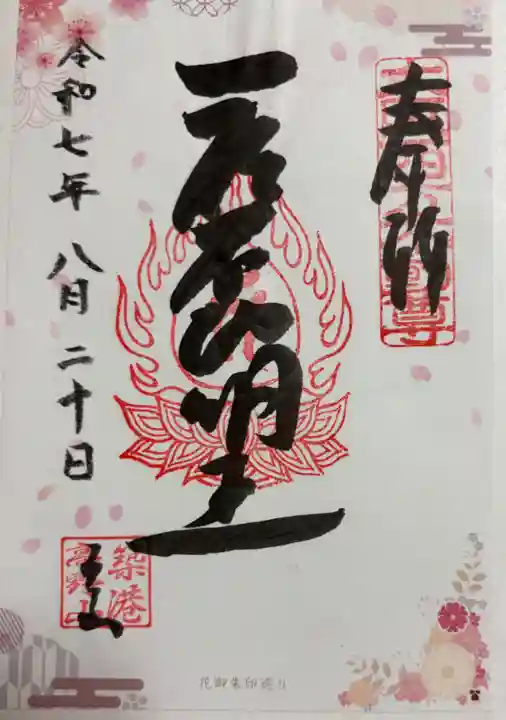 奉拝
一願不動明王
令和七年 八月 二十日
築港
高野山
花御朱印巡り